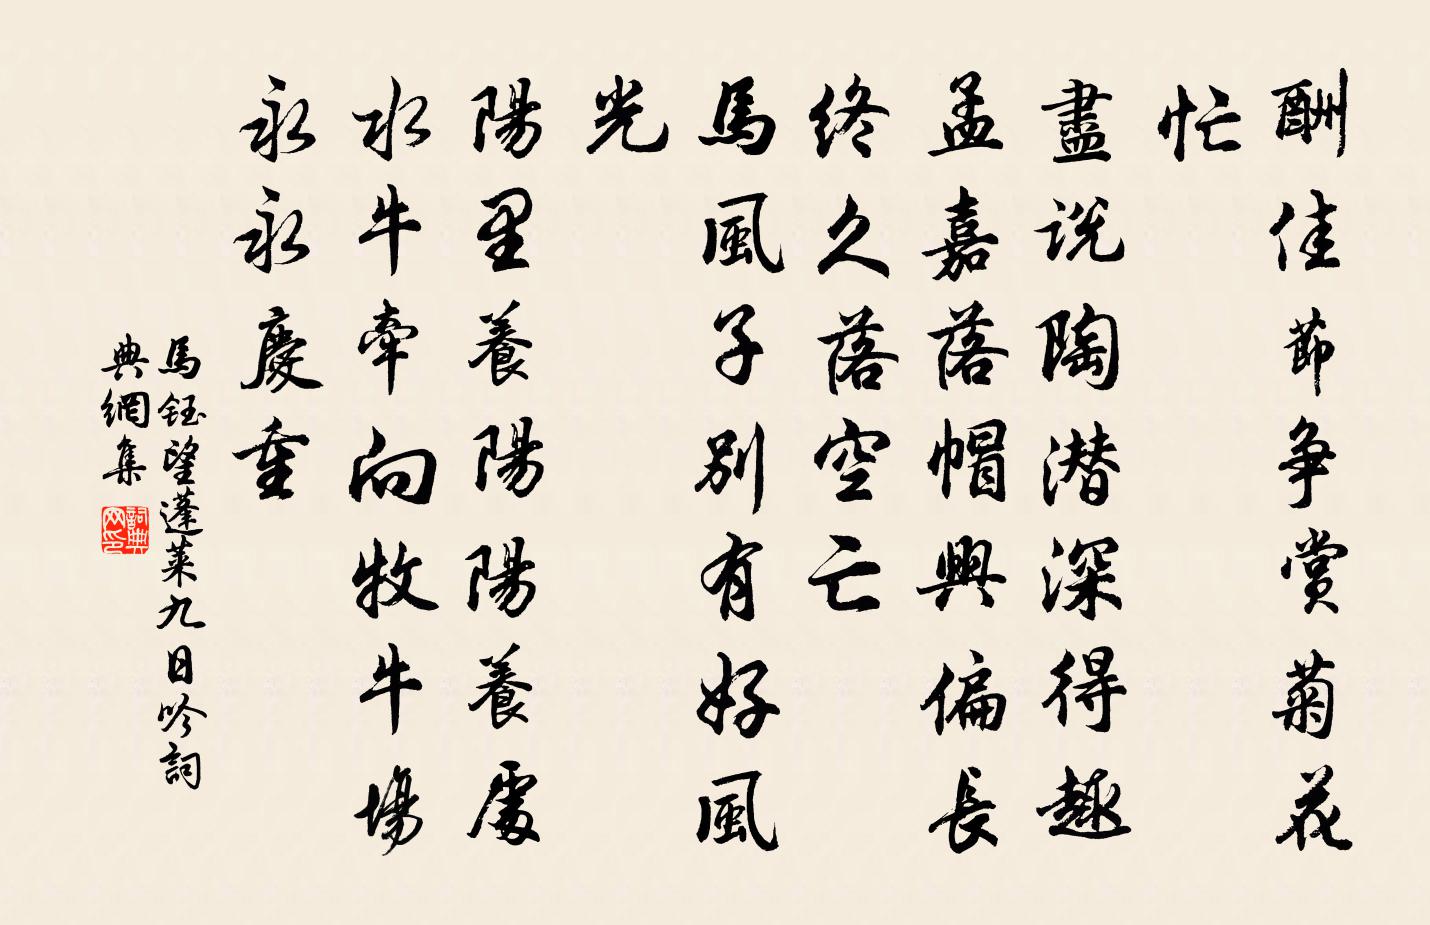 酬佳節争賞菊花
忙
盡説陶潜深得趣
孟嘉落帽興偏長
終久落空亡
馬風子别有好風
光
陽里養陽陽養處
水牛牽向牧牛場
永永慶重
馬鈺望蓬莱九日吟詞
典網集
詞典
网印